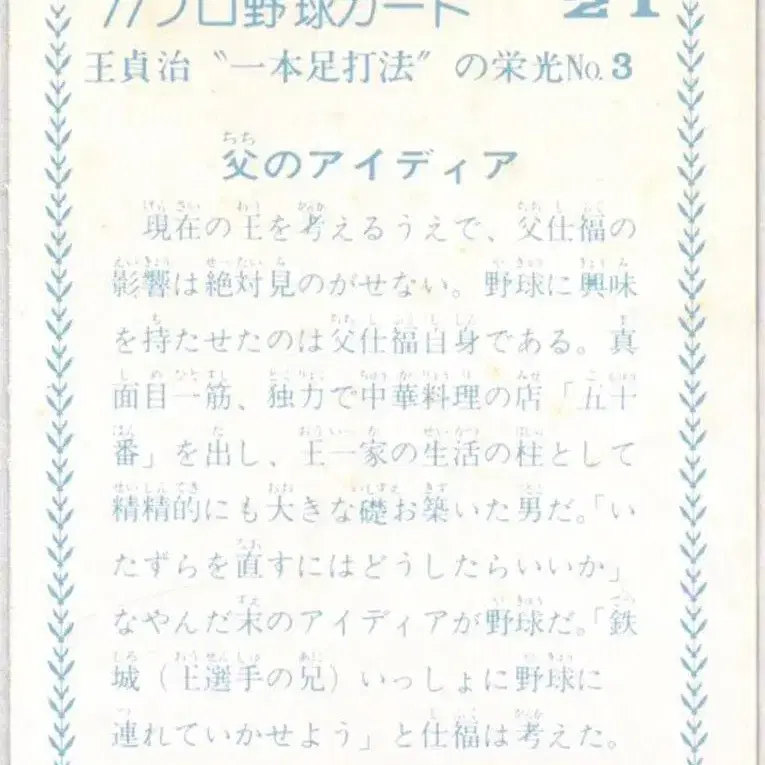 77プロ野球カード 21
王貞治〝一本足打法〟の栄光No.3
父のアイディア
現在の王を考えるうえで、父仕福の
影響は絶対見のがせない。野球に興味
を持たせたのは父仕福自身である。真
面目一筋、独力で中華料理の店「五十
番」を出し、王一家の生活の柱として
精精的にも大きな礎お築いた男だ。「い
たずらを直すにはどうしたらいいか」
なやんだ末のアイディアが野球だ。「鉄
城（王選手の兄）いっしょに野球に
連れていかせよう」と仕福は考えた。